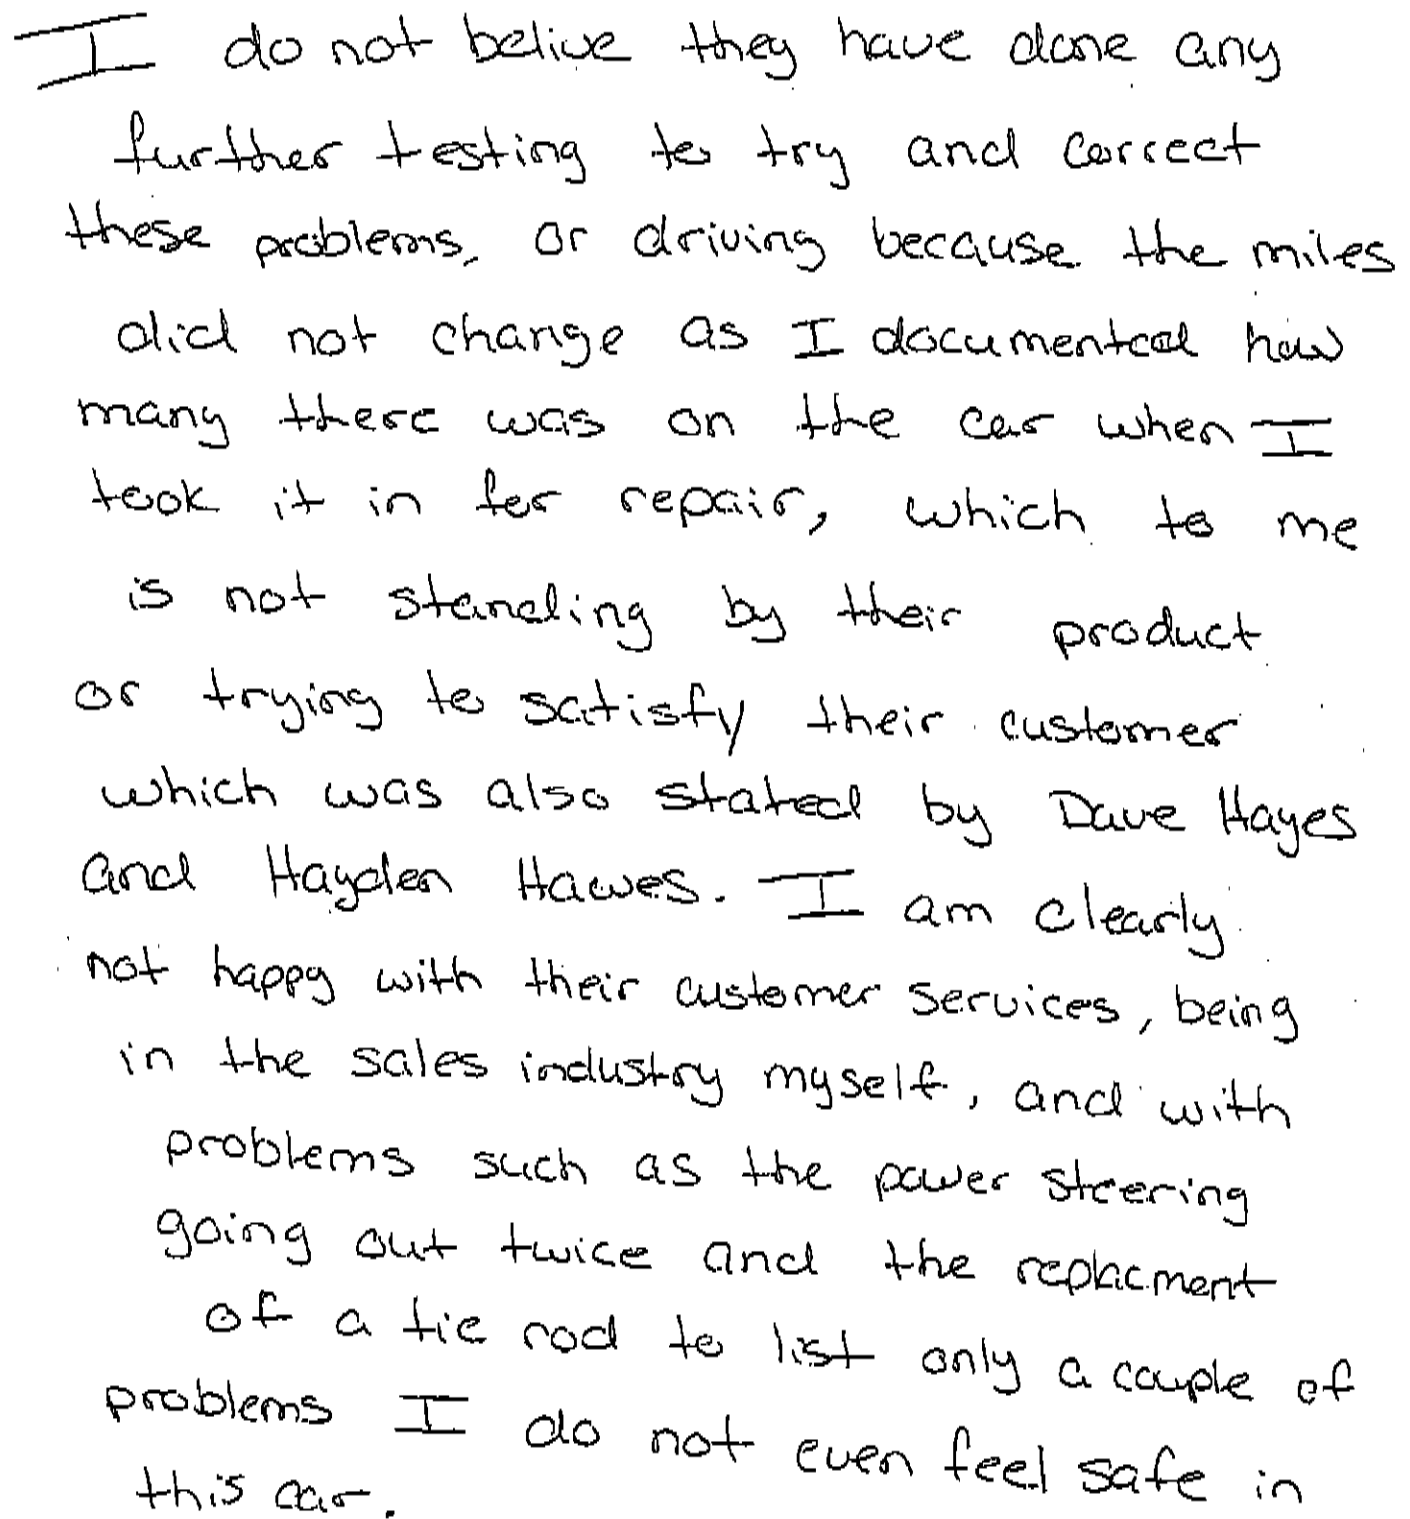 I do not belive they have done any
further testing to try and correct
these problems, or driving because the miles
did not change as I documented how
many there was on the car when I
took it in for repair, which to me
is not standing by their product
or trying to satisfy their customer
which was also stated by Dave Hayes
and Hayden Hawes. I am clearly
not happy with their customer services, being
in the sales industry myself, and with
problems such as the power steering
going out twice and the replacment
of a tie rod to list only a couple of
problems I do not even feel safe in
this car.